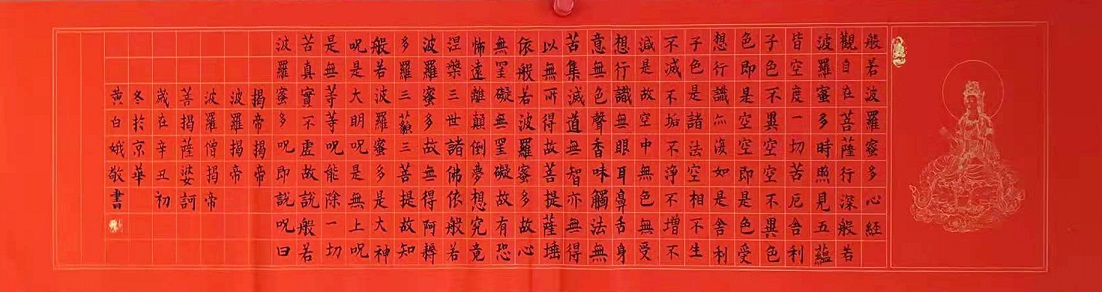 般若波羅蜜多心經
觀自在菩薩行深般若
波羅蜜多時照見五蘊
皆空度一切苦厄舍利
子色不異空空不異色
色即是空空即是色受
想行識亦復如是舍利
子色是諸法空相不生
不滅不垢不淨不增不
減是故空中無色無受
想行識無眼耳鼻舌身
意無色聲香味觸法無
苦集滅道無智亦無得
以無所得故菩提薩埵
依般若波羅蜜多故心
無罣礙無罣礙故有恐
怖遠離顛倒夢想究竟
涅槃三世諸佛依般若
波羅蜜多故無得阿耨
多羅三藐三菩提故知
般若波羅蜜多是大神
呪是大明呪是無上呪
是無等等呪能除一切
苦真實不虛故說般若
波羅蜜多呪即說呪曰
揭帝揭帝
波羅揭帝
波羅僧揭帝
菩揭薩婆訶
歲在辛丑初
冬於京華
黃白娥敬書